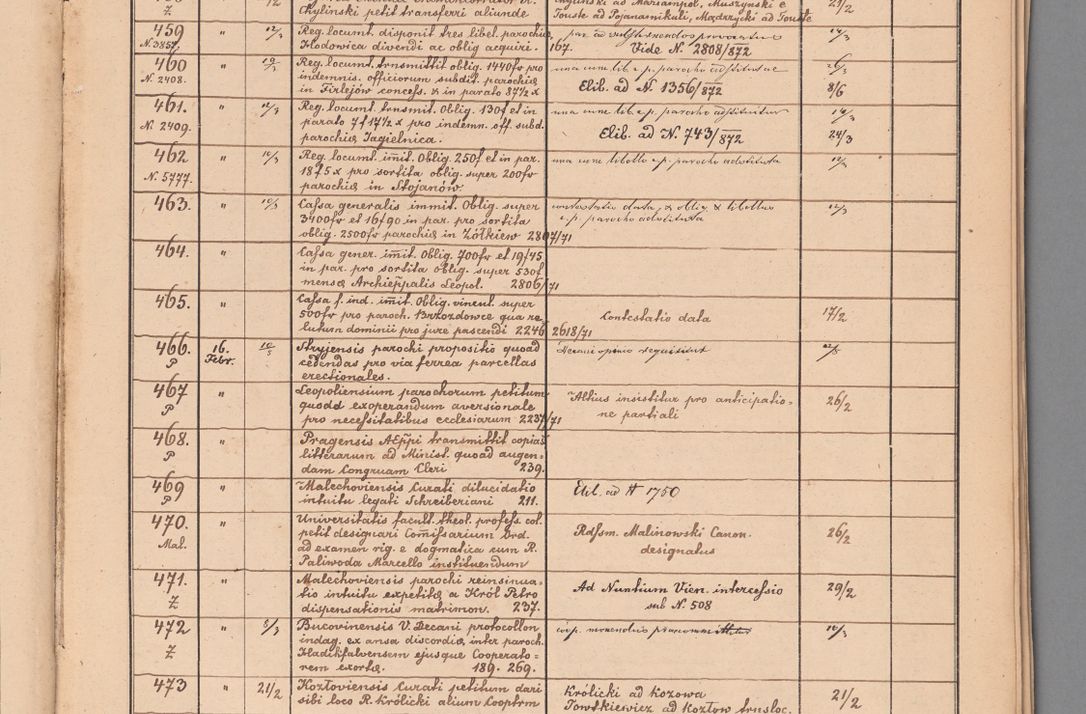 Chylinski petit transferri aliunde
Touste ad Pojanamikuli, Mądrzycki ad Touste
459 " 12/3 Reg. locumt. disponit tres libel. parochiæ
N. 3857. Kłodowica divendi ac oblig acquiri. 167. Vide N. 2808/872
460 " Reg. locumt. trnsmittit oblig. 1440fr pro
N. 2408. indemnis. officiorum subdit. parochiæ
in Firlejów concess. & in parato 87½ x Elib. ad N. 1356/872 8/6
461. " 12/3 Reg. locumt. trnsmit. Oblig. 130f et in
N. 2409. parato 7f 17½ x pro indemn. off. subd.
parochiæ Jagielnica. Elib. ad N. 743/872 24/3
462 " 10/3 Reg. locumt. imit. Oblig. 250f et in par.
N. 5777. 18f5x pro sortita oblig. super 200fr
parochiæ in Stojanów
463. " 10/3 Cassa generalis immit. Oblig. super
3400fr et 16f90 in par. pro sortita
oblig. 2500fr parochiæ in Żółkiew 2807/71
464. " Cassa gener. imit. Oblig. 700fr et 19f45
in par. pro sortita oblig. super 530f
mensæ Archieppalis Leopol. 2806/71
465. " Cassa f. ind. imit. Oblig. vincul. super
500fr pro paroch. Brzozdowce qua re=
lutum dominii pro jure pascendi 2246 2618/71 Contestatio data 17/2
466. 16. Febr. 10/5 Stryjensis parochi propositio quoad
P cedendas pro via ferrea parcellas
erectionales.
467 " Leopoliensium parochorum petitum
P quodd exoperandum aversionale
pro necessitatibus ecclesiarum 2237/71 Altius insistitur pro anticipatio=
ne partiali 26/2
468. " Pragensis AEppi transmittit copias
P litterarum ad Minist. quoad augen=
dam Congruam Cleri 239.
469 " Malechoviensis Curati dilucidatio
P intuitu legati Schreiberiani 211. Elib. ad N 1750
470. " Universitatis facult. theol. profess. col.
Mal. petit designari Comissarium Ord.
ad examen rig. e dogmatica cum R.
Paliwoda Marcello instituendum Rdssm. Malinowski Canon.
designatus 26/2
471. " Malechoviensis parochi reinsinua=
Z tio intuitu expetitæ a Król Petro
dispensationis matrimon. 237. Ad Nuntium Vien. intercessio
sub N. 508 29/2
472 " 5/3 Bucovinensis V. Decani protocollon
Z indag. ex ansa discordiæ inter paroch.
Hadikfalvensem ejusque Cooperato=
rem exortæ. 189. 269.
473 " 21/2 Kozłoviensis Curati petitum dari
sibi loco R. Królicki alium Cooptrm Królicki ad Kozowa
Towtkiewicz ad Kozłow trnsloc. 21/2